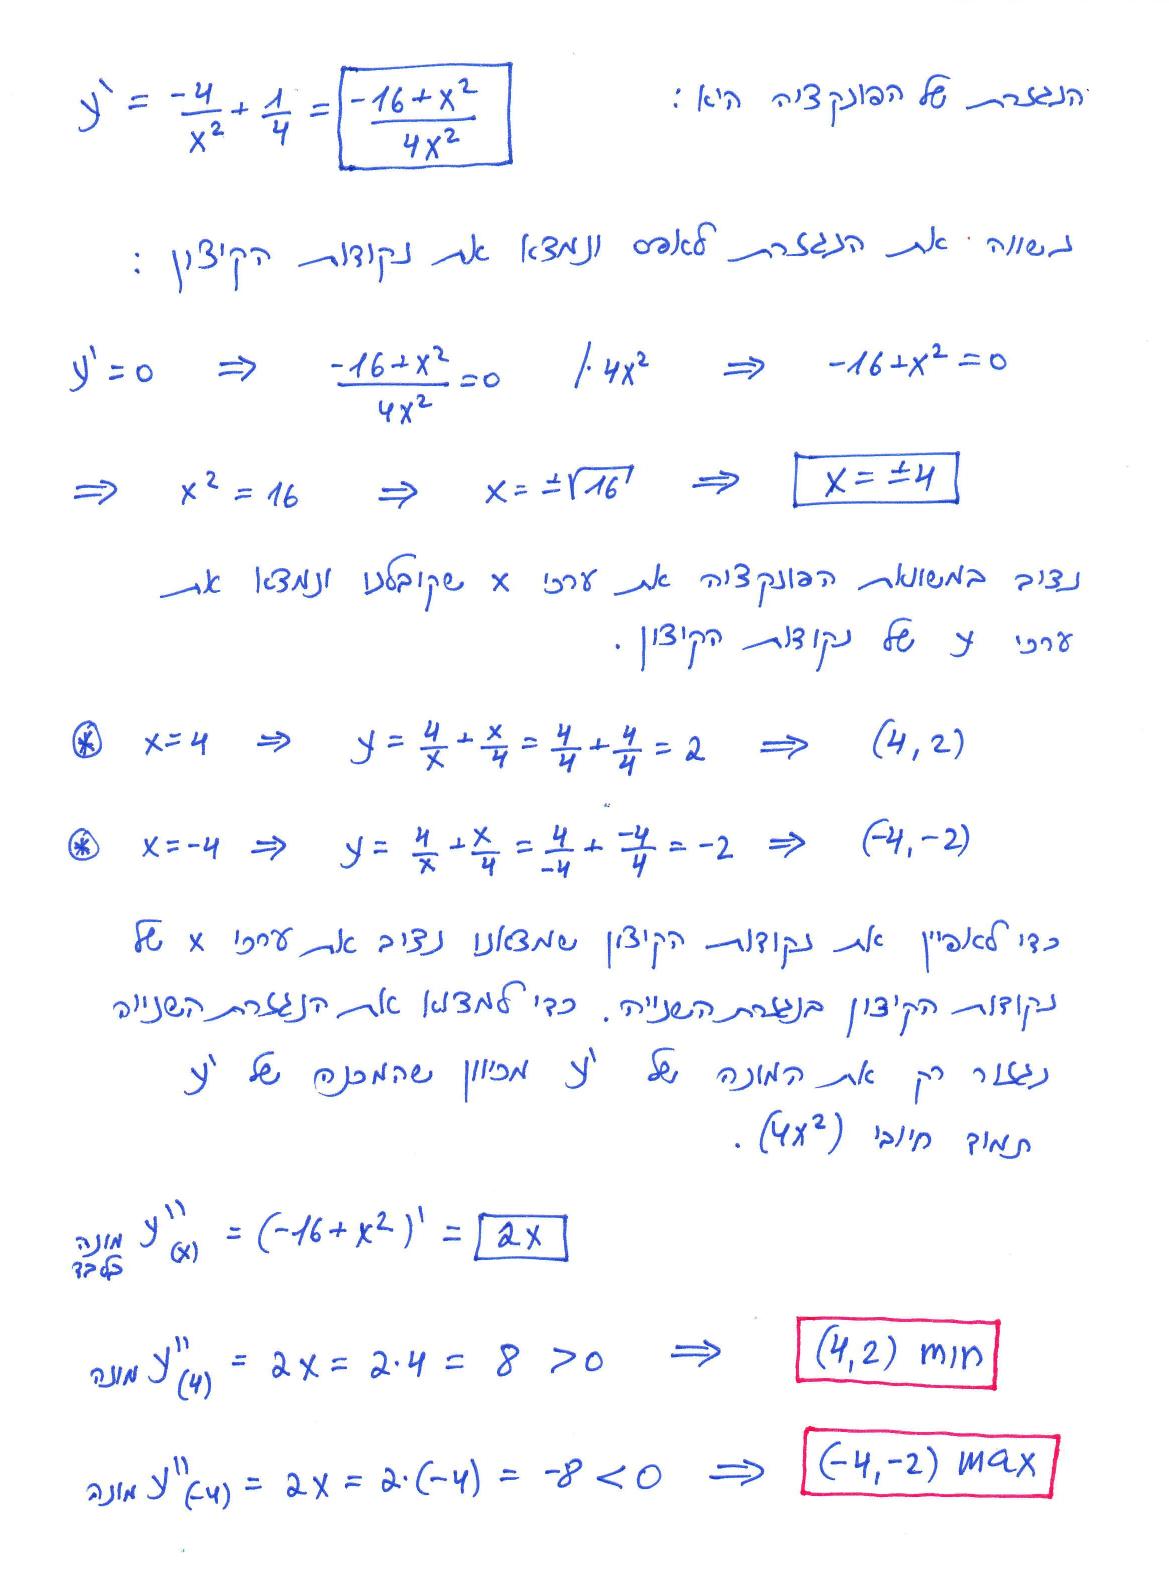 הנגזרת של הפונקציה היא: y' = -4/x² + 1/4 = (-16+x²)/(4x²)
נשווה את הנגזרת לאפס ונמצא את נקודות הקיצון:
y'=0 ⇒ (-16+x²)/(4x²) =0 /·4x² ⇒ -16+x²=0
⇒ x² = 16 ⇒ x=±√16 ⇒ x=±4
נציב במשוואת הפונקציה את ערכי x שקיבלנו ונמצא את
ערכי y של נקודות הקיצון.
⊛ x=4 ⇒ y = 4/x + x/4 = 4/4 + 4/4 = 2 ⇒ (4,2)
⊛ x=-4 ⇒ y = 4/x + x/4 = 4/-4 + -4/4 = -2 ⇒ (-4,-2)
כדי לאפיין את נקודות הקיצון שמצאנו נציב את ערכי x של
נקודות הקיצון בנגזרת השנייה. כדי למצוא את הנגזרת השנייה
נגזור רק את המונה של y' מכיוון שהמכנה של y'
תמיד חיובי (4x²).
מונה בלבד y''(x) = (-16+x²)' = 2x
מונה y''(4) = 2x = 2·4 = 8 >0 ⇒ (4,2) min
מונה y''(-4) = 2x = 2·(-4) = -8 <0 ⇒ (-4,-2) max